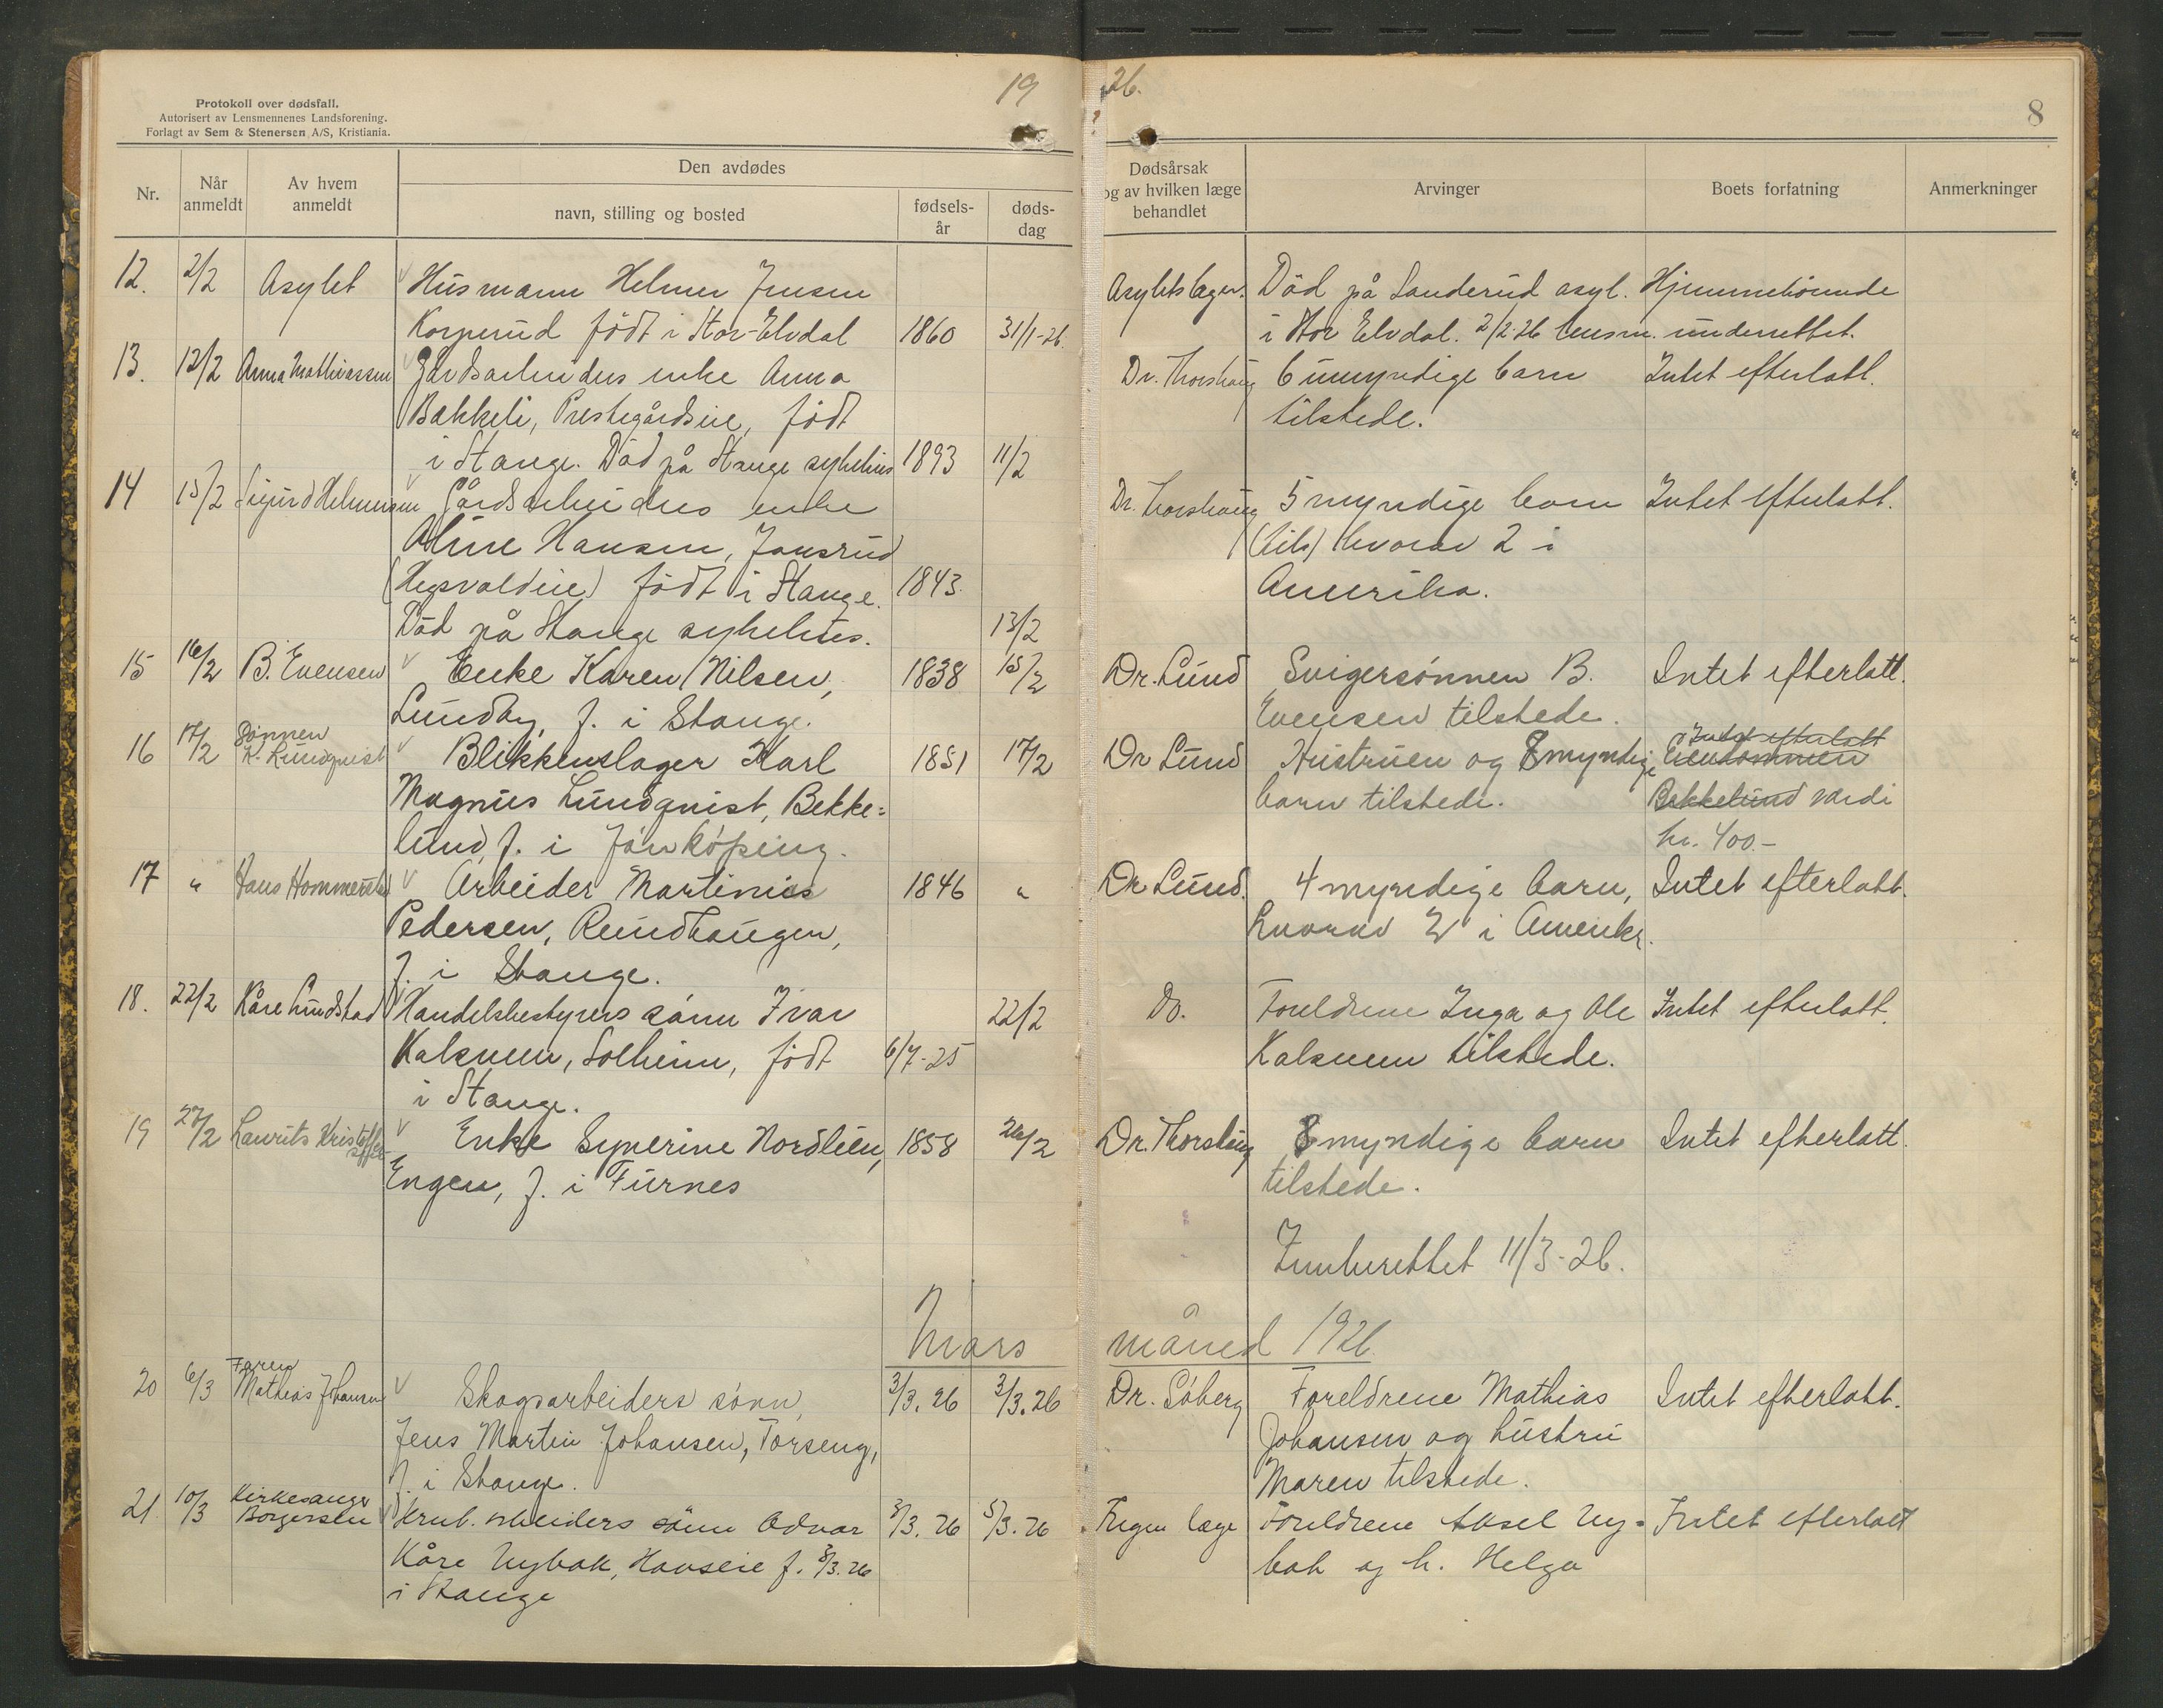 Protokoll over dødsfall.
Autorisert av Lensmennenes Landsforening.
Forlagt av Sem & Stenersen A/S, Kristiania.
19
Nr.
Når
anmeldt
Av hvem
anmeldt
Den avdødes
navn, stilling og bosted
fødsels-
år
døds-
dag
12. 2/2 Asylet Husmann Helmer Jensen
Korperud født i Stor-Elvdal 1860 31/1-26.
13. 12/2 Anna Mathiassen Gårdsarbeiders enke Anna
Bakkeli, Prestegårdseie, født
i Stange. Død på Stange sykehus 1893 11/2
14 15/2 Sigurd Helmersen Gårdsarbeiders enke
Oline Hansen, Jonsrud
(Hegsvoldeie) født i Stange. 1843.
Död på Stange sykehus. 13/2
15 16/2 B. Evensen Enke Karen Nilsen, 1838 15/2
Lundby, f. i Stange.
16 17/2 Sønnen
K. Lundquist Blikkenslager Karl 1851 17/2
Magnus Lundquist, Bekke=
lund, f. i Jönköping.
17 " Hans Hommerstad Arbeider Martinius 1846 "
Pedersen, Rundhaugen,
f. i Stange.
18. 22/2 Kåre Lundstad Handelsbestyrers sønn Ivar 22/2
Kalsveen, Solheim, født 6/7-25
i Stange.
19 27/2 Laurits Kristoffersen Enke Synerine Nordlien, 1858 26/2
Engen, f. i Furnes
Mars
20 6/3 Faren
Mathias Johansen Skogsarbeiders sønn, 3/3.26 3/3.26
Jens Martin Johansen, Torseng,
f. i Stange.
21. 10/3 Kirkesanger
Borgersen arbeiders sønn Odvar 3/3.26 5/3.26
Kåre Nybak, Hanseie f. 3/3.26
i Stange
26.
8
Dødsårsak
og av hvilken læge
behandlet
Arvinger
Boets forfatning
Anmerkninger
Asylets læger. Död på Sanderud asyl. Hjemmehörende
i Stor Elvdal. 2/2-26 lensm. underrettet.
Dr. Thorshaug 6 umyndige barn Intet efterlatt.
tilstede.
Dr. Thorshaug 5 myndige barn Intet efterlatt.
(tils) hvorav 2 i
Amerika.
Dr. Lund Svigersønnen B. Intet efterlatt.
Evensen tilstede.
Intet efterlatt
Dr Lund Hustruen og 8 myndige Eiendommen
barn tilstede. Bekkelund verdi
kr. 400.-
Dr Lund. 4 myndige barn, Intet efterlatt.
hvorav 2 i Amerika.
Do. Foreldrene Inga og Ole Intet efterlatt.
Kalsveen tilstede.
Dr. Thorshaug 8 myndige barn Intet efterlatt.
tilstede.
Innberettet 11/3-26.
måned 1926.
Dr. Søberg Foreldrene Mathias Intet efterlatt.
Johansen og hustru
Maren tilstede.
Ingen læge Foreldrene Aksel Ny= Intet efterlatt
bak og h. Helga